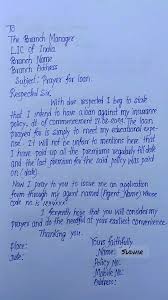 To
The Branch Manager
LIC of India
Branch Name
Branch Address
Subject: Prayer for loan.
Respected Sir,
With due respected I beg to state
that I intend to have a loan against my insurance
policy. of commencement The loan
prayed for is simply to meet my educational expe-
nse. It will not be unfair to mentions here that
I have paid all the premiums regularly till date
and the last premium for the said policy was paid
on (date).
Now I pray to you to issue me an application
from through my agent named (Agent Name) whose
code no is
I fervently hope that you will consider my
prayer and do the needful at your earliest convenience.
Thanking you.
Place: Yours faithfully
Date: Name:
Policy No:
Mobile No:
Address: